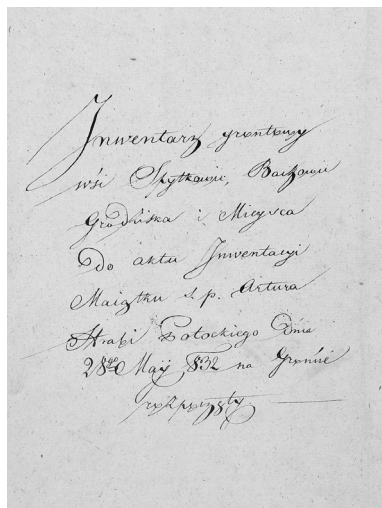 Inwentarz gruntowy
wsi Spytkowic, Bachowic
Grodziska i Mieysca
Do aktu Inwentacyi
Maiątku s. p. Artura
Hrabi Potockiego Dnia
28go Maij 832 na Grunćie
rozpoczęty